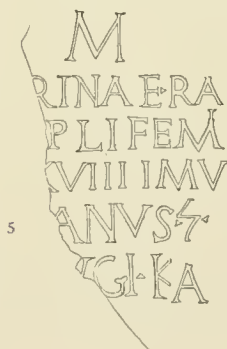 M
RINA E·RA
PLI FEM
XVIIII MV
5 ANVS·
GI·KA